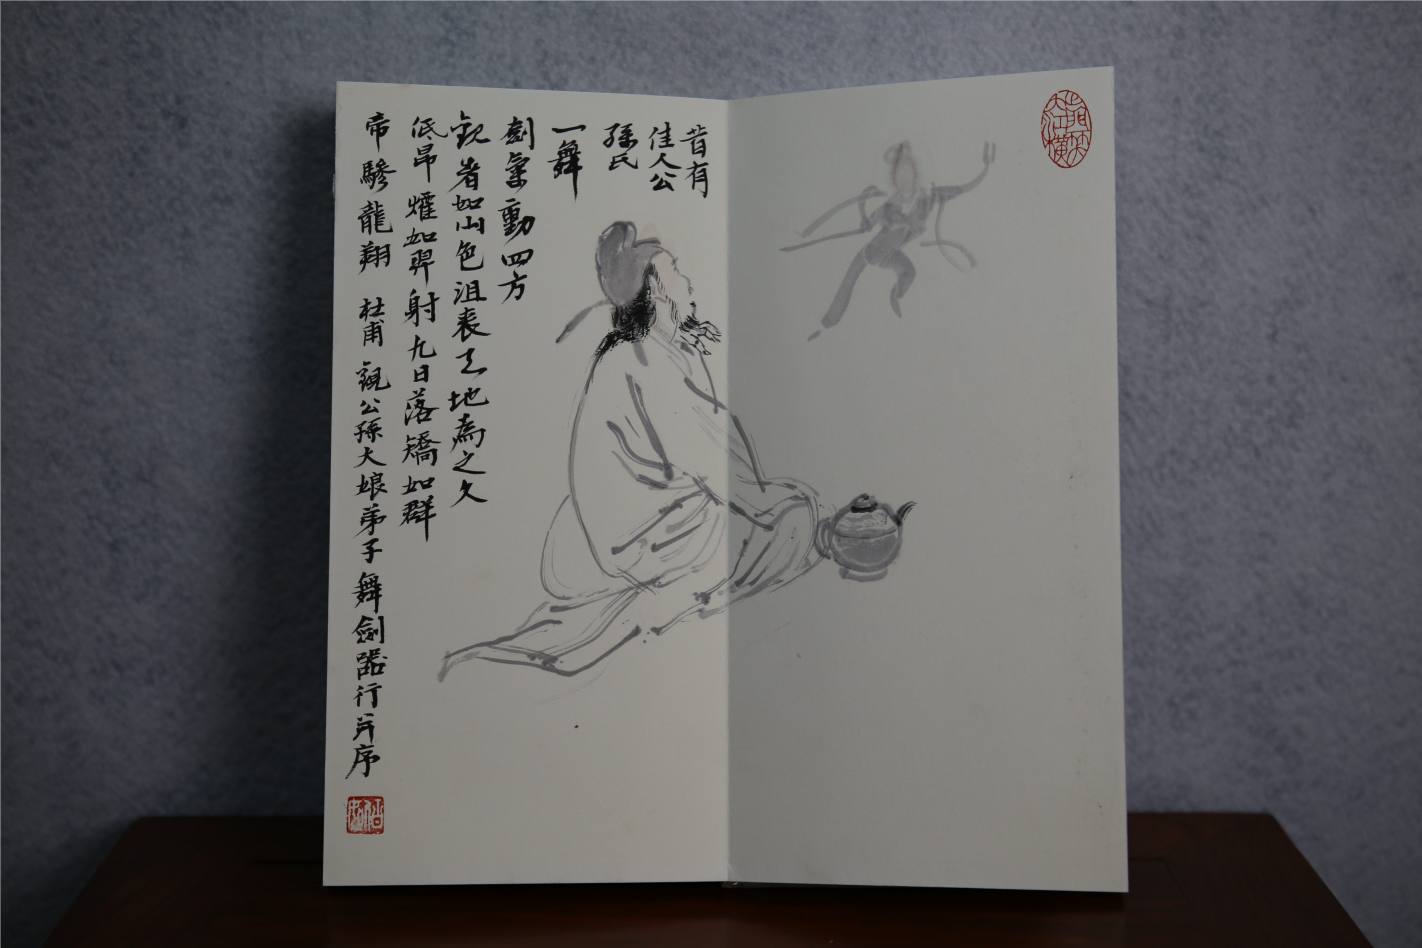 大江橫
昔有
佳人公
孫氏
一舞
劍氣動四方
觀者如山色沮喪天地為之久
低昂㸌如羿射九日落矯如群
帝驂龍翔 杜甫觀公孫大娘弟子舞劍器行并序